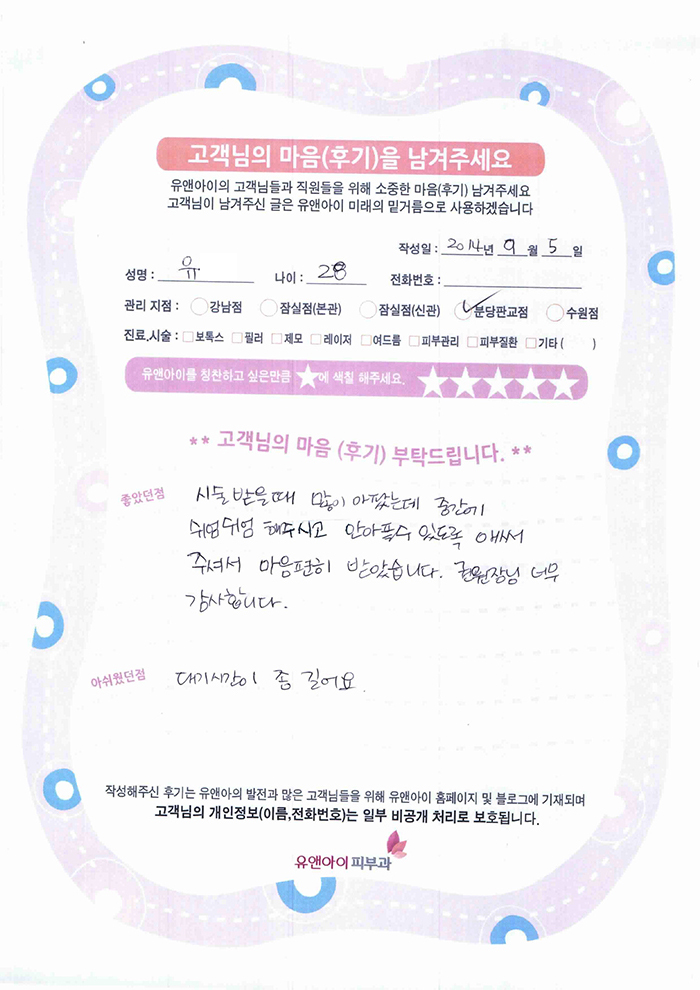 고객님의 마음(후기)을 남겨주세요
유앤아이의 고객님들과 직원들을 위해 소중한 마음(후기) 남겨주세요
고객님이 남겨주신 글은 유앤아이 미래의 밑거름으로 사용하겠습니다
작성일 : 2014년 9 월 5 일
성명 : 유 나이 : 28 전화번호 :
관리 지점 : 강남점 잠실점(본관) 잠실점(신관) 분당판교점 수원점
진료,시술 : 보톡스 필러 제모 레이저 여드름 피부관리 피부질환 기타 ( )
유앤아이를 칭찬하고 싶은만큼 ★에 색칠 해주세요. ★★★★★
** 고객님의 마음 (후기) 부탁드립니다. **
좋았던점 시술 받을때 많이 아팠는데 중간에
쉬엄쉬엄 해주시고 안아플수 있도록 애써
주셔서 마음편히 받았습니다. 권원장님 너무
감사합니다.
아쉬웠던점 대기시간이 좀 길어요.
작성해주신 후기는 유앤아의 발전과 많은 고객님들을 위해 유앤아이 홈페이지 및 블로그에 기재되며
고객님의 개인정보(이름,전화번호)는 일부 비공개 처리로 보호됩니다.
유앤아이피부과